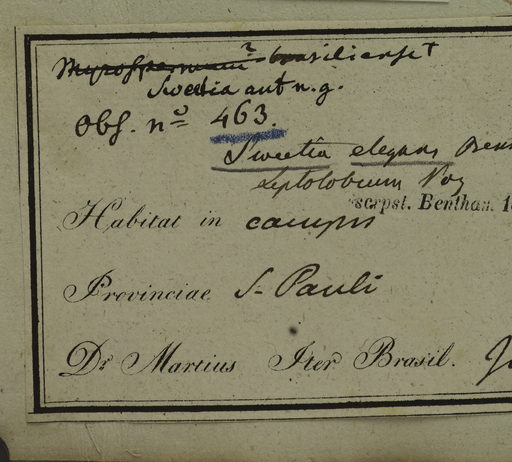 Myrospermum? brasiliense +
Sweetia aut n. g.
Obs. nº 463.
Sweetia elegans Ben
Leptolobium Vog
scrpst. Bentham. 1
Habitat in campis
Provinciae S. Pauli
Dr Martius Iter Brasil.